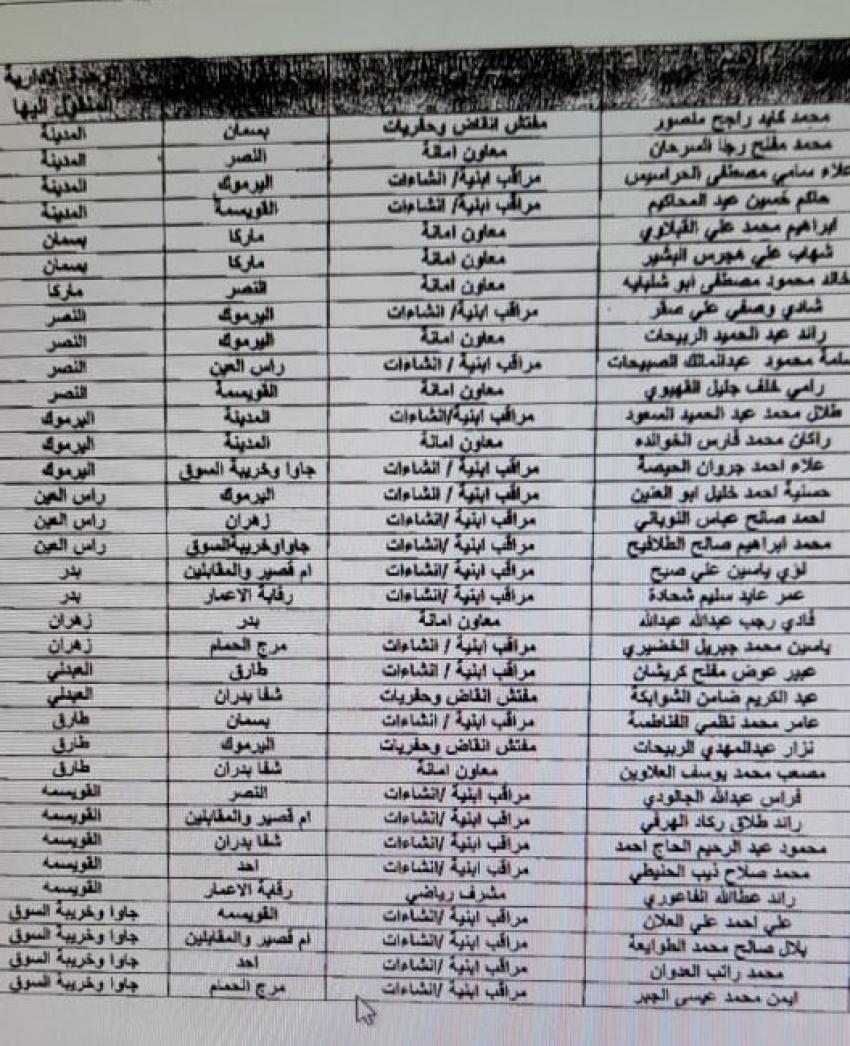 الوحدة الادارية
المنقول اليها
محمد كايد راجح منصور مفتش انقاض وحفريات بسمان المدينة
محمد مفلح رجا السرحان معاون امانة النصر المدينة
علاء سامي مصطفى الحراسيس مراقب ابنية/ انشاءات اليرموك المدينة
حاكم حسين عبد المحاكيم مراقب ابنية/ انشاءات القويسمة المدينة
ابراهيم محمد علي القيلاوي معاون امانة ماركا بسمان
شهاب علي هجرس البشير معاون امانة ماركا بسمان
خالد محمود مصطفى ابو شلبايه معاون امانة النصر ماركا
شادي وصفي علي صقر مراقب ابنية/ انشاءات اليرموك النصر
رائد عبد الحميد الربيحات معاون امانة اليرموك النصر
محمود عبدالمالك الصبيحات مراقب ابنية / انشاءات راس العين النصر
رامي خلف جليل الفهيوي معاون امانة القويسمة النصر
طلال محمد عبد الحميد السعود مراقب ابنية/انشاءات المدينة اليرموك
راكان محمد فارس الخوالده معاون امانة المدينة اليرموك
علاء احمد جروان الحيصة مراقب ابنية / انشاءات جاوا وخريبة السوق اليرموك
حسنية احمد خليل ابو العنين مراقب ابنية / انشاءات اليرموك راس العين
احمد صالح عباس النوباني مراقب ابنية /انشاءات زهران راس العين
محمد ابراهيم صالح الطلافيح مراقب ابنية /انشاءات جاواوخريبةالسوق راس العين
لؤي ياسين علي صبح مراقب ابنية /انشاءات ام قصير والمقابلين بدر
عمر عايد سليم شحادة مراقب ابنية /انشاءات رقابة الاعمار بدر
فادي رجب عبدالله عبدالله معاون امانة بدر زهران
ياسين محمد جبريل الخضيري مراقب ابنية / انشاءات مرج الحمام زهران
عبير عوض مفلح كريشان مراقب ابنية / انشاءات طارق العبدلي
عبد الكريم ضامن الشوابكة مفتش انقاض وحفريات شفا بدران العبدلي
عامر محمد نظمي الفناطسة مراقب ابنية / انشاءات بسمان طارق
نزار عبدالمهدي الربيحات مفتش انقاض وحفريات اليرموك طارق
مصعب محمد يوسف العلاوين معاون امانة شفا بدران طارق
فراس عبدالله الجالودي مراقب ابنية /انشاءات النصر القويسمه
رائد طلاق ركاد الهرفي مراقب ابنية /انشاءات ام قصير والمقابلين القويسمه
محمود عبد الرحيم الحاج احمد مراقب ابنية /انشاءات شفا بدران القويسمه
محمد صلاح ذيب الحنيطي مراقب ابنية /انشاءات احد القويسمه
رائد عطاالله الفاعوري مشرف رياضي رقابة الاعمار القويسمه
علي احمد علي العلان مراقب ابنية /انشاءات القويسمه جاوا وخريبة السوق
بلال صالح محمد الطوايعة مراقب ابنية /انشاءات ام قصير والمقابلين جاوا وخريبة السوق
محمد راتب العدوان مراقب ابنية /انشاءات احد جاوا وخريبة السوق
ايمن محمد عيسى الجبر مراقب ابنية /انشاءات مرج الحمام جاوا وخريبة السوق